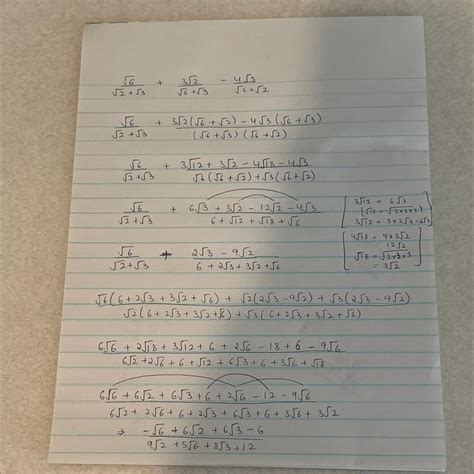 √6/(√2+√3) + 3√2/(√6+√3) - 4√3/(√6+√2)
√6/(√2+√3) + (3√2(√6+√2) - 4√3(√6+√3))/((√6+√3)(√6+√2))
√6/(√2+√3) + (3√12 + 3√2 - 4√18 - 4√3)/(√6(√6+√2)+√3(√6+√2))
√6/(√2+√3) + (6√3 + 3√2 - 12√2 - 4√3)/(6 + √12 + √18 + √6)
[3√12 = 6√3
(√12 = √2×2×3)
3√12 = 3×2√3 = 6√3]
[4√18 = 4×3√2
12√2
√18 = √2×3×3
= 3√2]
√6/(√2+√3) + (2√3 - 9√2)/(6 + 2√3 + 3√2 + √6)
(√6(6+2√3+3√2+√6) + √2(2√3-9√2) + √3(2√3-9√2))/(√2(6+2√3+3√2+√6) + √3(6+2√3+3√2+√6))
(6√6 + 2√18 + 3√12 + 6 + 2√6 - 18 + 6 - 9√6)/(6√2 + 2√6 + 6 + √12 + 6√3 + 6 + 3√6 + √18)
(6√6 + 6√2 + 6√3 + 6 + 2√6 - 12 - 9√6)/(6√2 + 2√6 + 6 + 2√3 + 6√3 + 6 + 3√6 + 3√2)
⇒ (-√6 + 6√2 + 6√3 - 6)/(9√2 + 5√6 + 8√3 + 12)